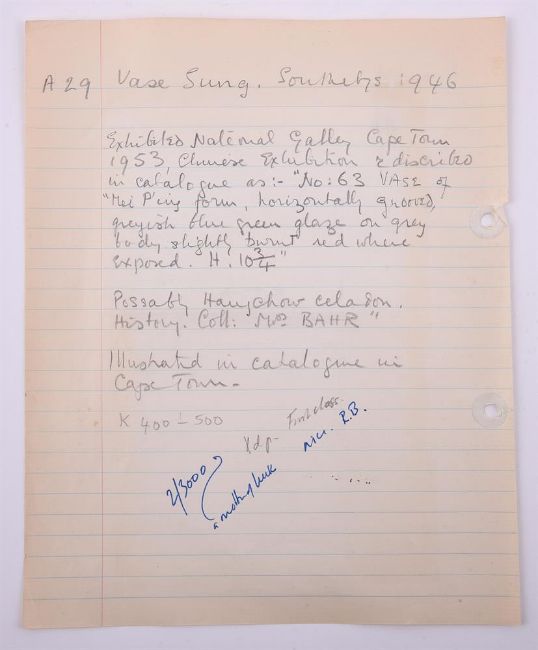 A 29 Vase Sung. Southebys 1946
Exhibited National Galley Cape Town
1953, Chinese Exhibition & discribed
in catalogue as:- "No: 63 VASE of
"Mei P'ing form, horizontally grooved,
greyish blue green glaze on grey
body slightly burnt red where
exposed. H. 10 3/4"
Possably Hangchow celadon.
History. Coll: "Mrs BAHR"
Illustrated in catalogue in
Cape Town-
K 400 - 500
First class.
Nice. R.B.
2/3000